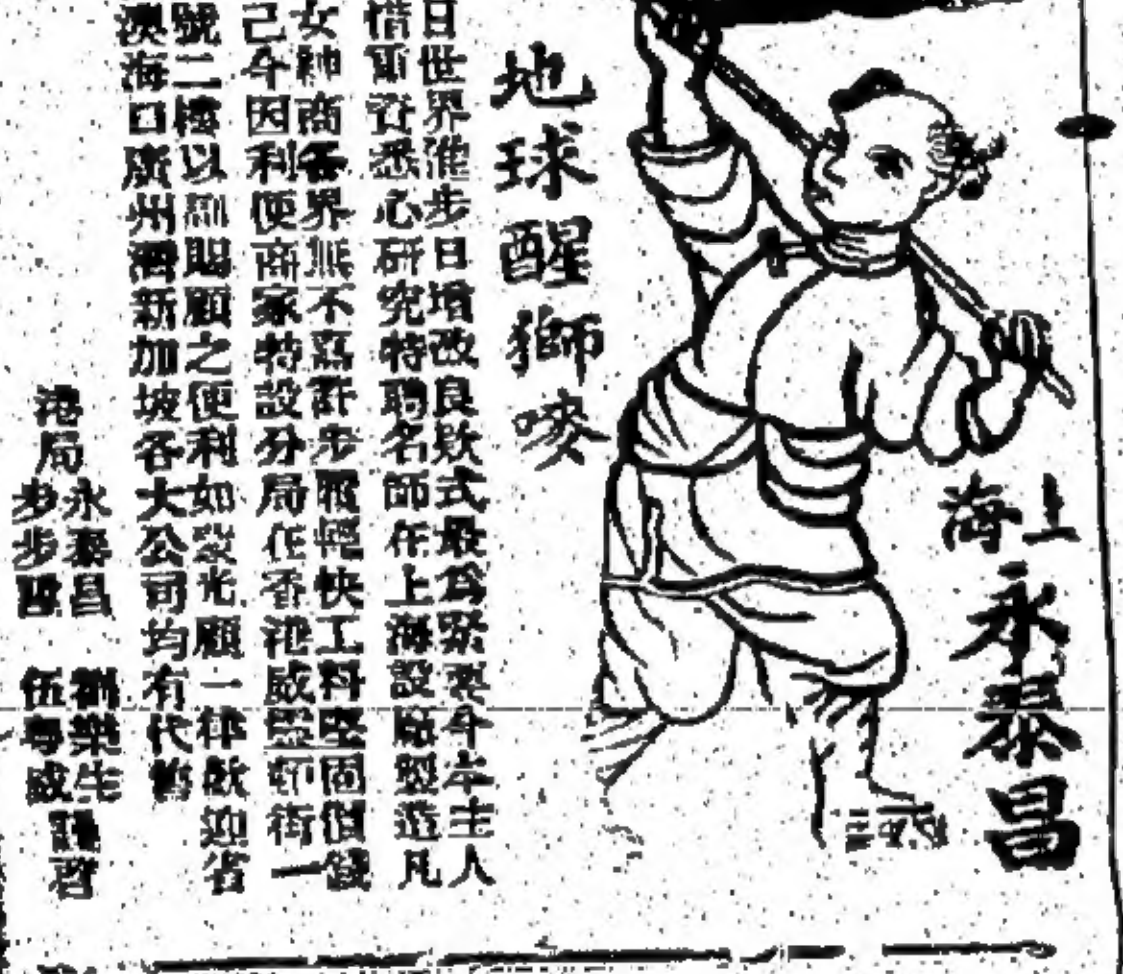 上海
永泰昌
地球醒獅嘜
日世界進步日增改良款式最爲緊要今本主人
惜重資悉心研究特聘名師在上海設廠製造凡
女紳商各界無不嘉許步履輕快工料堅固價錢
己今因利便商家特設分局在香港威靈頓街一
號二樓以爲賜顧之便利如蒙光顧一律歡迎省
澳海口廣州灣新加坡各大公司均有代售
港局
永泰昌 劉樂生
步步陞 伍粤威
謹啓